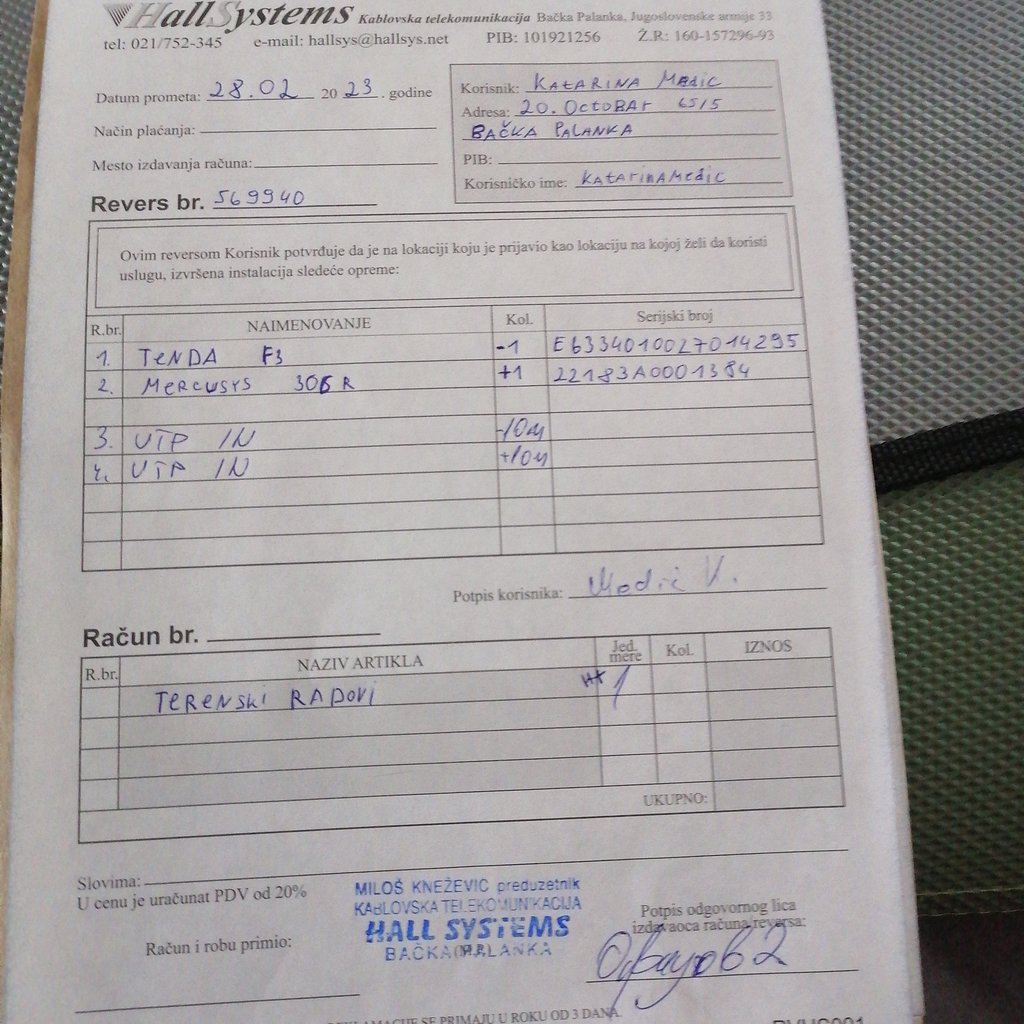 HallSystems Kablovska telekomunikacija Bačka Palanka, Jugoslovenske armije 33
tel: 021/752-345 e-mail: hallsys@hallsys.net PIB: 101921256 Ž.R: 160-157296-93
Datum prometa: 28.02 20 23 . godine
Način plaćanja:
Mesto izdavanja računa:
Revers br. 569940
Korisnik: KATARINA MEDIC
Adresa: 20. OCTOBAR 65/5
BAČKA PALANKA
PIB:
Korisničko ime: KATARINAMEDIC
Ovim reversom Korisnik potvrđuje da je na lokaciji koju je prijavio kao lokaciju na kojoj želi da koristi
uslugu, izvršena instalacija sledeće opreme:
R.br. NAIMENOVANJE Kol. Serijski broj
1. TENDA F3 -1 E6334010027014295
2. MERCUSYS 306R +1 22183A0001384
3. UTP IN -10m
4. UTP IN +10m
Potpis korisnika: Medić V.
Račun br.
R.br. NAZIV ARTIKLA Jed. mere Kol. IZNOS
TERENSKI RADOVI 1
UKUPNO:
Slovima:
U cenu je uračunat PDV od 20%
MILOŠ KNEŽEVIĆ preduzetnik
KABLOVSKA TELEKOMUNIKACIJA
HALL SYSTEMS
BAČKA PALANKA
Račun i robu primio:
Potpis odgovornog lica
izdavaoca računa/reversa:
SE PRIMAJU U ROKU OD 3 DANA.